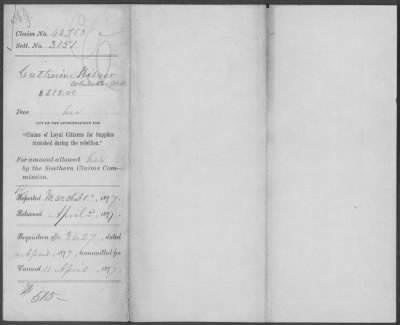 Claim No. 40,
Sett. No. 3151
Catherine
$ 515.00
Due her
OUT OF THE APPROPRIATION FOR
"Claims of Loyal Citizens for Supplies
furnished during the rebellion."
For amount allowed her
by the Southern Claims Com-
mission.
Reported March 187 7.
Returned April 2", 1877.
Requisition No. 3627, dated
April, 1877, transmitted for
Warrant 11 April, 1877.
$515